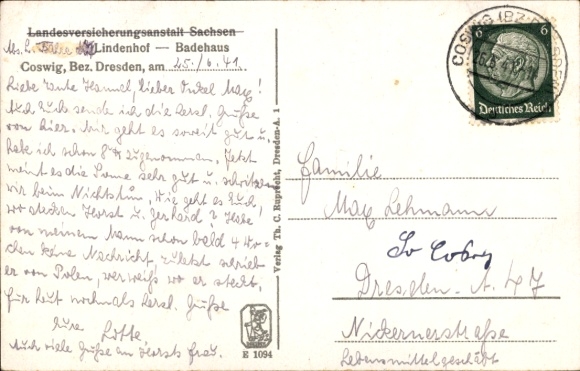 Landesversicherungsanstalt Sachsen
Lindenhof — Badehaus
Coswig, Bez. Dresden, am 25./6.41.
Liebe Tante Hermel, lieber Onkel Max!
Auch Euch sende ich die herzl. Grüße
von hier. Mir geht es soweit gut u.
habe ich schon 8 ℔ zugenommen. Jetzt
meint es die Sonne sehr gut u. schwitzen
wir beim Nichtstun. Wie geht es Euch?
wo stecken Horst u. Gerhard? Habe
von meinem Mann schon bald 4 Wo-
chen keine Nachricht, zuletzt schrieb
er von Polen, wer weiß wo er steckt,
für heut nochmals herzl. Grüße
Eure Lotte
Auch viele Grüße an Horsts Frau.
Verlag Th. C. Ruprecht, Dresden-A. 1
E 1094
COSWIG (BZ. DRESDEN)
6 6
Deutsches Reich
Familie
Max Lehmann
Dresden-A. 47
Nickernerstraße
Lebensmittelgeschäft